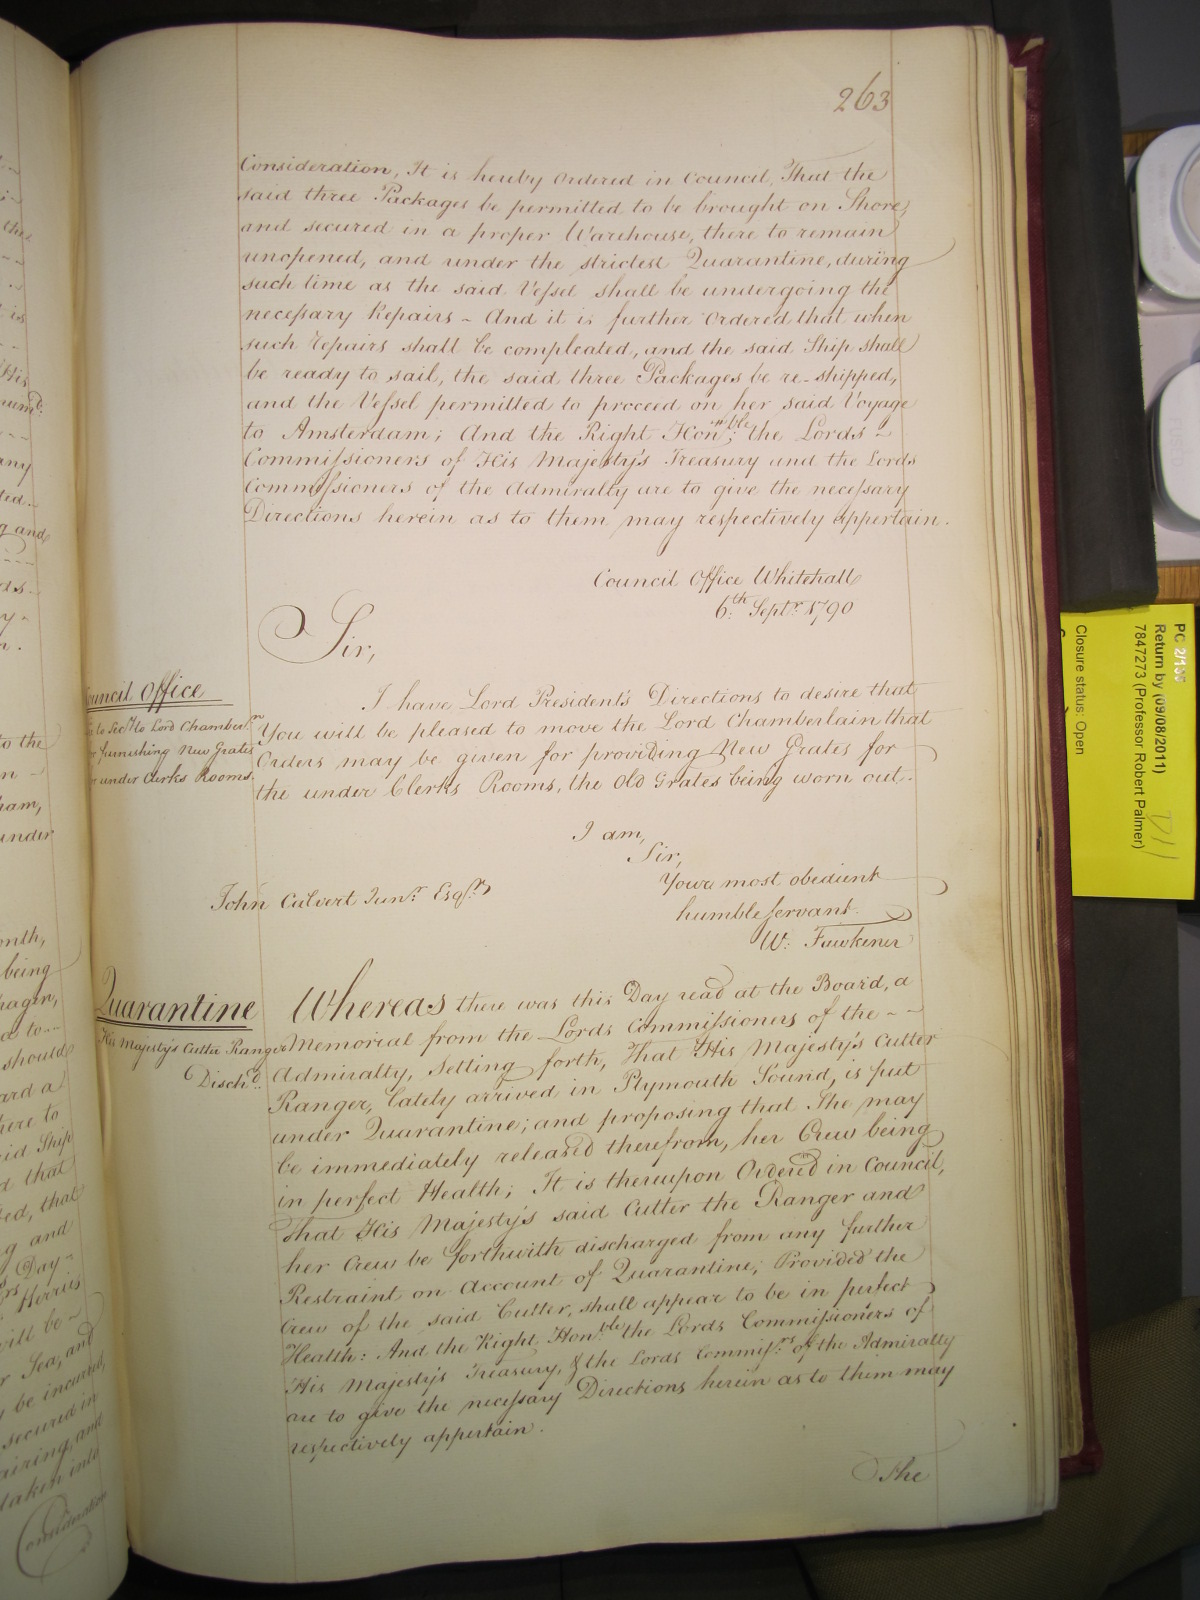 263
Consideration, It is hereby ordered in Council, That the
said three Packages be permitted to be brought on Shore,
and secured in a proper Warehouse, there to remain
unopened, and under the strictest Quarantine, during
such time as the said Vessel shall be undergoing the
necessary Repairs - And it is further ordered that when
such repairs shall be compleated, and the said Ship shall
be ready to sail, the said three Packages be re-shipped,
and the Vessel permitted to proceed on her said Voyage
to Amsterdam; And the Right Honble: the Lords -
Commissioners of His Majesty's Treasury and the Lords
Commissioners of the Admiralty are to give the necessary
Directions herein as to them may respectively appertain.
Council Office Whitehall
6th Septr. 1790
Sir,
Council Office
to Secry to Lord Chamberln
for furnishing New Grates
for under Clerks Rooms.
I have Lord President's Directions to desire that
You will be pleased to move the Lord Chamberlain that
Orders may be given for providing New Grates for
the under Clerks Rooms, the Old Grates being worn out.
I am,
Sir,
Your most obedient
humble Servant.
W: Fawkener
John Calvert Junr. Esqr.
Quarantine
His Majesty's Cutter Ranger
Dischd:
Whereas there was this Day read at the Board, a
Memorial from the Lords Commissioners of the - -
Admiralty, Setting forth, That His Majesty's Cutter
Ranger, lately arrived in Plymouth Sound, is put
under Quarantine; and proposing that She may
be immediately released therefrom, her Crew being
in perfect Health; It is thereupon Ordered in Council,
That His Majesty's said Cutter the Ranger and
her Crew be forthwith discharged from any further
Restraint on Account of Quarantine; Provided the
Crew of the said Cutter, shall appear to be in perfect
Health: And the Right Honble the Lords Commissioners of
His Majesty's Treasury, & the Lords Commissrs. of the Admiralty
are to give the necessary Directions herein as to them may
respectively appertain.
The
PC 2/135
Return by (09/08/2011)
7847273 (Professor Robert Palmer)
Closure status: Open
D11